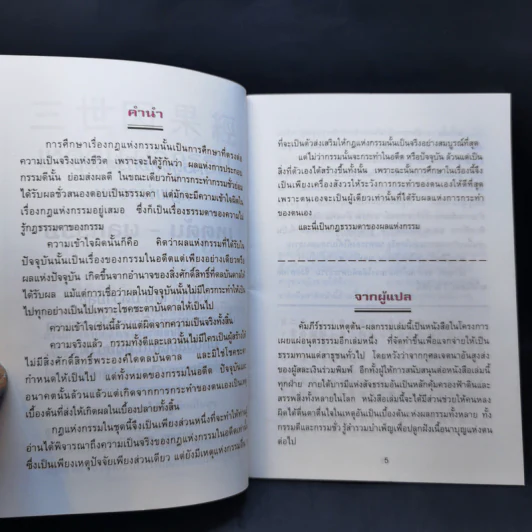 คำนำ
การศึกษาเรื่องกฎแห่งกรรมนั้นเป็นการศึกษาที่ตรงต่อ
ความเป็นจริงแห่งชีวิต เพราะจะได้รู้กันว่า ผลแห่งการประกอบ
กรรมดีนั้น ย่อมส่งผลดี ในขณะเดียวกันการกระทำกรรมชั่วย่อม
ได้รับผลชั่วสนองตอบเป็นธรรมดา แต่มักจะมีความเข้าใจผิดใน
เรื่องกฎแห่งกรรมอยู่เสมอ ซึ่งก็เป็นเรื่องธรรมดาของความไม่
รู้กฎธรรมดาของกรรม
ความเข้าใจผิดนั้นก็คือ คิดว่าผลแห่งกรรมที่ได้รับใน
ปัจจุบันนั้นเป็นเรื่องของกรรมในอดีตแต่เพียงอย่างเดียวหรือ
ผลแห่งปัจจุบัน เกิดขึ้นจากอำนาจของสิ่งศักดิ์สิทธิ์ที่ดลบันดาลให้
ได้รับผล แม้แต่การเชื่อว่าผลในปัจจุบันนั้นไม่มีใครกระทำให้เป็น
ไปทุกอย่างเป็นไปเพราะโชคชะตาบันดาลให้เป็นไป
ความเข้าใจเช่นนี้ล้วนแต่ผิดจากความเป็นจริงทั้งสิ้น
ความจริงแล้ว กรรมทั้งดีและเลวนั้นไม่มีใครเป็นผู้สร้าง
ไม่มีสิ่งศักดิ์สิทธิ์พระองค์ใดดลบันดาล และมิใช่โชคชะตา
กำหนดให้เป็นไป แต่ทั้งหมดของกรรมในอดีต ปัจจุบัน
อนาคตนั้นล้วนแต่เกิดจากการกระทำของตนเองเป็น
เบื้องต้นที่ส่งให้เกิดผลในเบื้องปลายทั้งสิ้น
กฎแห่งกรรมในชุดนี้จึงเป็นเพียงส่วนหนึ่งที่จะทำให้ท่านผู้
อ่านได้พิจารณาถึงความเป็นจริงของกฎแห่งกรรมในอดีตเท่านั้น
ซึ่งเป็นเพียงเหตุปัจจัยเพียงส่วนเดียว แต่ยังมีเหตุแห่งกรรมอื่น
ที่จะเป็นตัวส่งเสริมให้กฎแห่งกรรมนั้นเป็นจริงอย่างสมบูรณ์ที่สุด
แต่ไม่ว่ากรรมนั้นจะกระทำในอดีต หรือปัจจุบัน ล้วนแต่เป็น
สิ่งที่ตัวเองได้สร้างขึ้นทั้งนั้น เพราะฉะนั้นการศึกษาในเรื่องนี้จึง
เป็นเพียงเครื่องสังวรให้ระวังการกระทำของตนเองให้ดีที่สุด
เพราะตนเองจะเป็นผู้เดียวเท่านั้นที่ได้รับผลแห่งการกระทำ
ของตนเอง
และนี่เป็นกฎธรรมดาของผลแห่งกรรม
จากผู้แปล
คัมภีร์ธรรมเหตุต้น-ผลกรรมเล่มนี้เป็นหนังสือในโครงการ
เผยแผ่อนุตตรธรรมอีกเล่มหนึ่ง ที่จัดทำขึ้นเพื่อแจกจ่ายให้เป็น
ธรรมทานแด่สาธุชนทั่วไป โดยหวังว่าจากกุศลเจตนาอันสูงส่ง
ของผู้สละเงินร่วมพิมพ์ อีกทั้งผู้ให้การสนับสนุนต่อหนังสือเล่มนี้
ทุกฝ่าย ภายใต้บารมีแห่งสัจธรรมอันเป็นหลักคุ้มครองฟ้าดินและ
สรรพสิ่งทั้งหลายในโลก หนังสือเล่มนี้จะได้มีส่วนช่วยให้คนหลง
ผิดได้ตื่นตาตื่นใจในเหตุอันเป็นเบื้องต้นแห่งผลกรรมทั้งหลาย ทั้ง
กรรมดีและกรรมชั่ว รู้สำรวมบำเพ็ญเพื่อปลูกฝังเนื้อนาบุญแห่งตน
ต่อไป
5